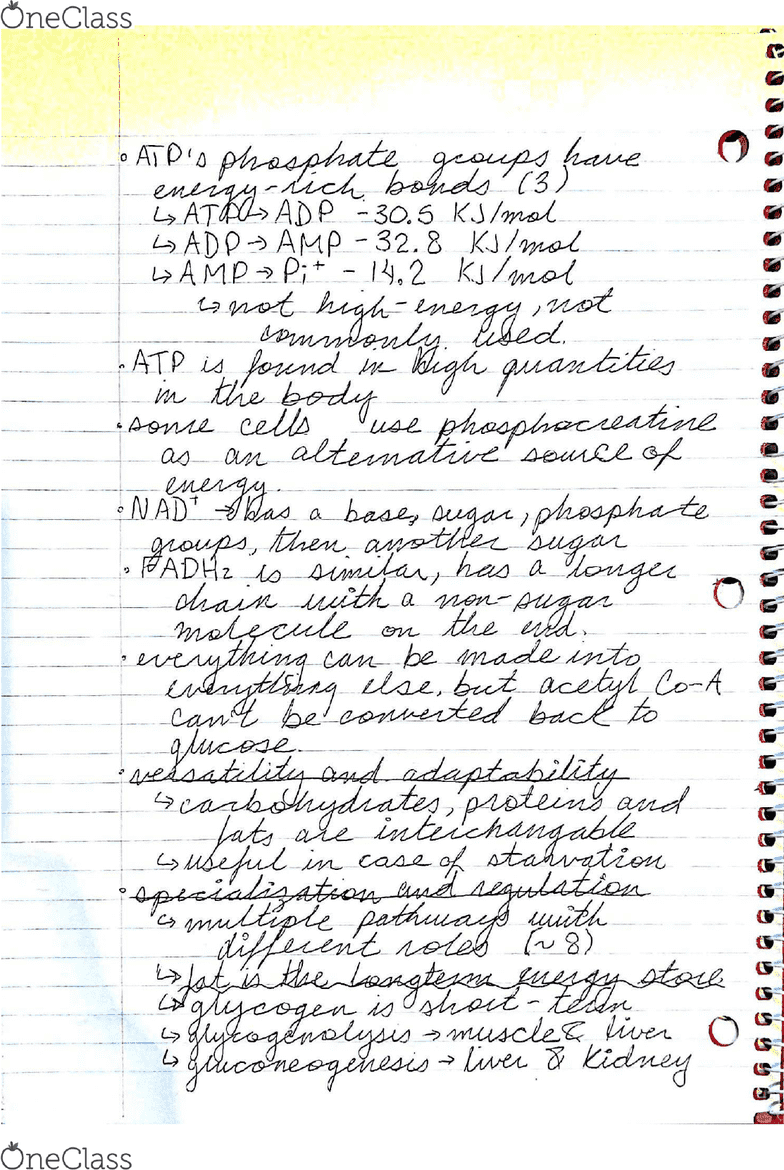 OneClass
• ATP's phosphate groups have
energy-rich bonds (3)
↳ ATP → ADP - 30.5 KJ/mol
↳ ADP → AMP - 32.8 KJ/mol
↳ AMP → Pi+ - 14.2 KJ/mol
↳ not high-energy, not
commonly used.
• ATP is found in high quantities
in the body
• some cells use phosphocreatine
as an alternative source of
energy.
• NAD+ → has a base, sugar, phosphate
groups, then another sugar
• FADH2 is similar, has a longer
chain with a non-sugar
molecule on the end.
• everything can be made into
everything else, but acetyl Co-A
can't be converted back to
glucose.
• versatility and adaptability
↳ carbohydrates, proteins and
fats are interchangable
↳ useful in case of starvation
• specialization and regulation
↳ multiple pathways with
different roles (~8)
↳ fat is the longterm energy store
↳ glycogen is short-term
↳ glycogenolysis → muscle & liver
↳ gluconeogenesis → liver & kidney
OneClass